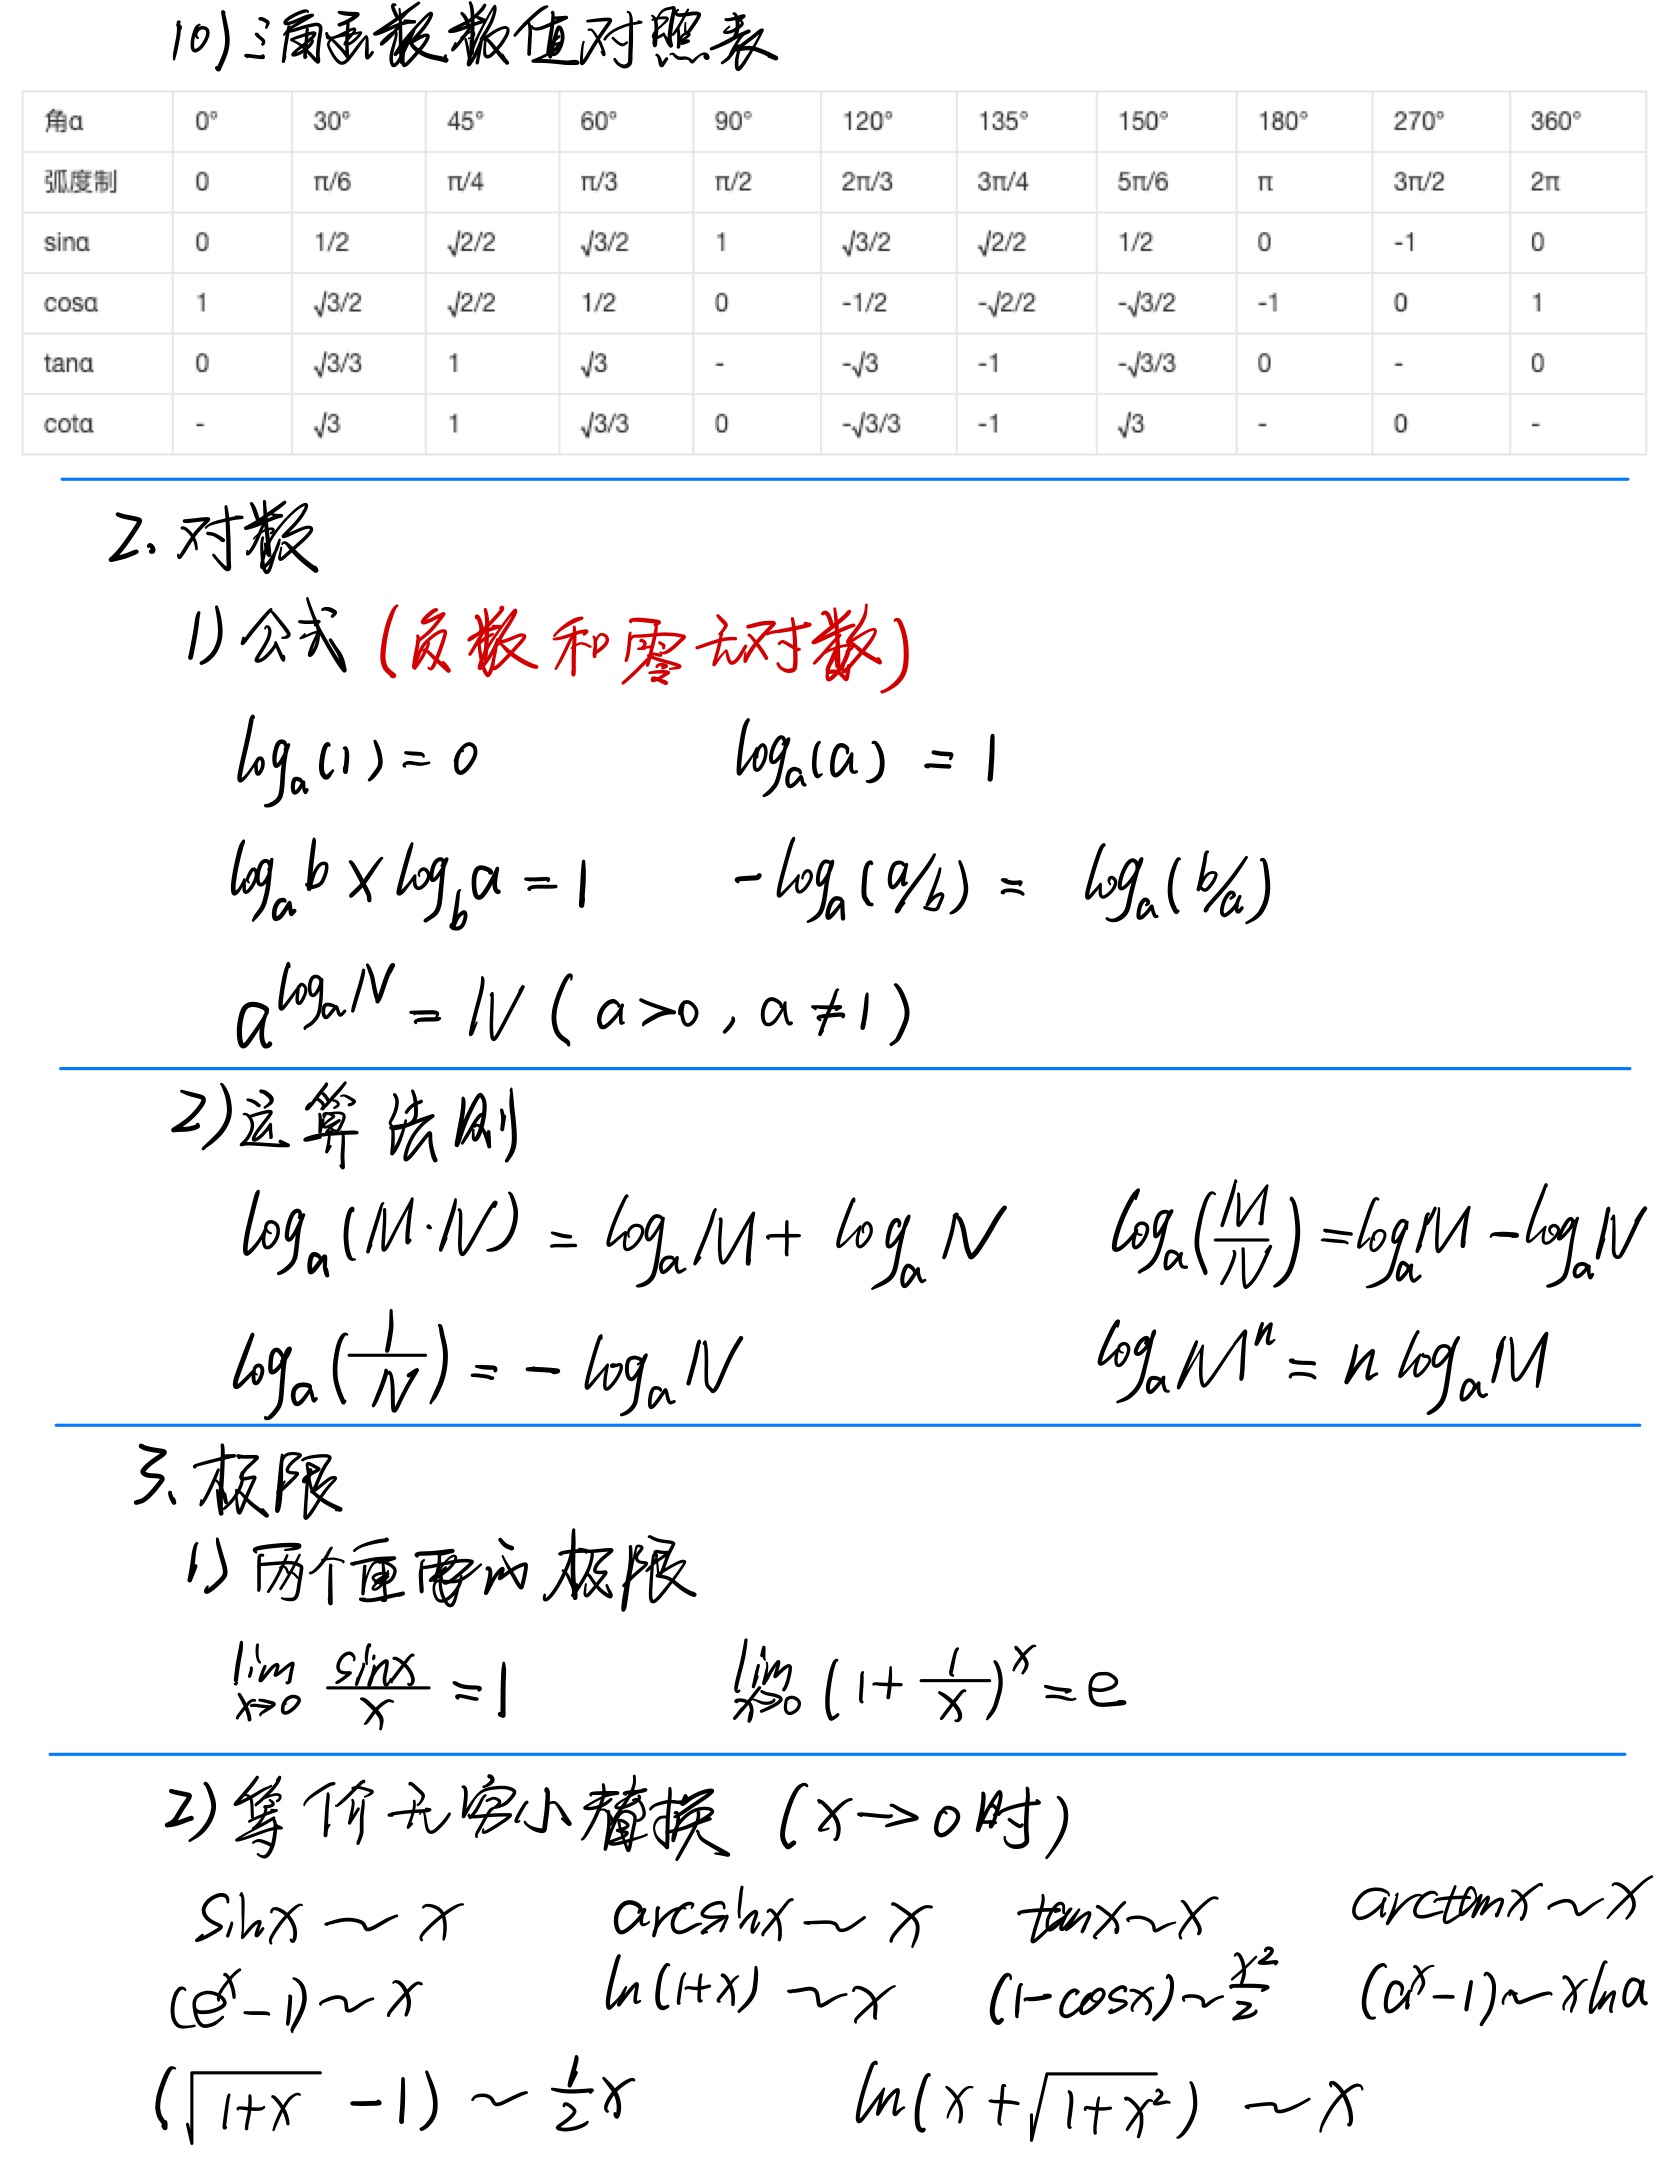 10)三角函数数值对照表
角α 0° 30° 45° 60° 90° 120° 135° 150° 180° 270° 360°
弧度制 0 π/6 π/4 π/3 π/2 2π/3 3π/4 5π/6 π 3π/2 2π
sinα 0 1/2 √2/2 √3/2 1 √3/2 √2/2 1/2 0 -1 0
cosα 1 √3/2 √2/2 1/2 0 -1/2 -√2/2 -√3/2 -1 0 1
tanα 0 √3/3 1 √3 - -√3 -1 -√3/3 0 - 0
cotα - √3 1 √3/3 0 -√3/3 -1 √3 - 0 -
2. 对数
1) 公式 (负数和零无对数)
logₐ(1) = 0 logₐ(a) = 1
logₐb × log_b a = 1 -logₐ(a/b) = logₐ(b/a)
a^(logₐN) = N ( a>0 , a≠1 )
2)运算法则
logₐ(M·N) = logₐM + logₐN logₐ(M/N) = logₐM - logₐN
logₐ(1/N) = - logₐN logₐMⁿ = n logₐM
3、极限
1) 两个重要的极限
lim x→0 sinx/x = 1 lim x→0 (1+1/x)^x = e
2) 等价无穷小替换 (x→0时)
sinx ~ x arcsinx ~ x tanx ~ x arctanx ~ x
(e^x - 1) ~ x ln(1+x) ~ x (1-cosx) ~ x²/2 (a^x - 1) ~ xlna
(√(1+x) - 1) ~ 1/2 x ln(x+√(1+x²)) ~ x